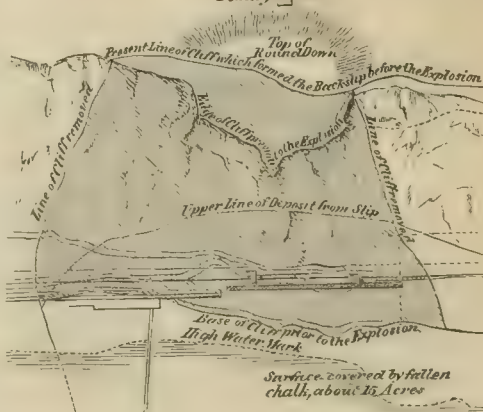 Top of
Round Down
Present Line of Cliff which formed the Backslip before the Explosion
Edge of Cliff to the Explosion
Line of Cliff removed
Line of Cliff removed
Upper Line of Deposit from Slip
Base of Cliff prior to the Explosion
High Water Mark
Surface covered by fallen
chalk, about 15 Acres